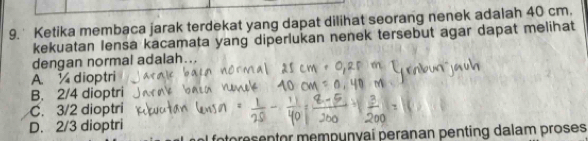 9. Ketika membaca jarak terdekat yang dapat dilihat seorang nenek adalah 40 cm.
kekuatan lensa kacamata yang diperlukan nenek tersebut agar dapat melihat
dengan normal adalah...
A. ¼ dioptri Jarak baca normal 25 cm = 0,25 m
B. 2/4 dioptri Jarak baca nenek 40 cm = 0,40 m
C. 3/2 dioptri kekuatan lensa = 1/25 - 1/40 = 8-5/200 = 3/200 =
D. 2/3 dioptri
fotoreseptor mempunyai peranan penting dalam proses